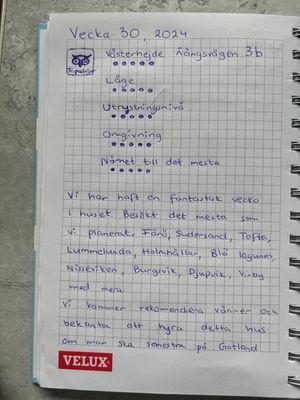 Vecka 30, 2024
Västerhejde Äängsvägen 3b
Tripadvisor
Läge
Utrustningsnivå
Omgivning
Närhet till det mesta
Vi har haft en fantastisk vecka
i huset. Besökt det mesta som
vi planerat. Fårö, Sudersand, Tofta,
Lummelunda, Holmhällar, Blå lagunen,
Nisseviken, Burgsvik, Djupvik, Visby
med mera.
Vi kommer rekomendera vänner och
bekanta att hyra detta hus
om man ska semestra på Gotland
VELUX